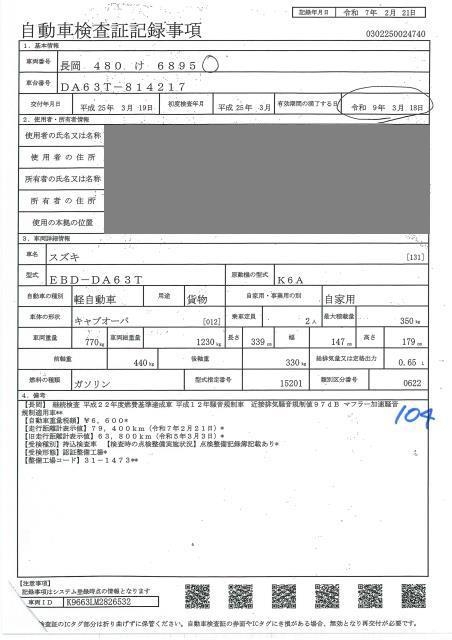 記録年月日 令和 7年 2月 21日
自動車検査証記録事項
0302250024740
1. 基本情報
車両番号 長岡 480 け 6895
車台番号 DA63T-814217
交付年月日 平成 25年 3月 19日 初度検査年月 平成 25年 3月 有効期間の満了する日 令和 9年 3月 18日
2. 使用者・所有者情報
使用者の氏名又は名称
使用者の住所
所有者の氏名又は名称
所有者の住所
使用の本拠の位置
3. 車両詳細情報
車名 スズキ [131]
型式 EBD-DA63T 原動機の型式 K6A
自動車の種別 軽自動車 用途 貨物 自家用・事業用の別 自家用
車体の形状 キャブオーバ [012] 乗車定員 2人 最大積載量 350kg
車両重量 770kg 車両総重量 1230kg 長さ 339cm 幅 147cm 高さ 179cm
前軸重 440kg 後軸重 330kg 総排気量又は定格出力 0.65L
燃料の種類 ガソリン 型式指定番号 15201 類別区分番号 0622
4. 備考
【長岡】 継続検査 平成22年度燃費基準達成車 平成12年騒音規制車 近接排気騒音規制値97dB マフラー加速騒音
規制適用車**
【自動車重量税額】¥6,600*
【走行距離計表示値】79,400km(令和7年2月21日)*
【旧走行距離計表示値】63,800km(令和5年3月3日)*
【受検種別】持込検査車 【検査時の点検整備実施状況】点検整備記録簿記載あり*
【受検形態】認証整備工場*
【整備工場コード】31-1473**
104
【注意事項】
記録事項はシステム登録時点の情報となります
車両ID K9663LM2826532
検査証のICタグ部分は折り曲げずに保管ください。自動車検査証の券面やICタグにき損がある場合、無効となり再交付が必要です。